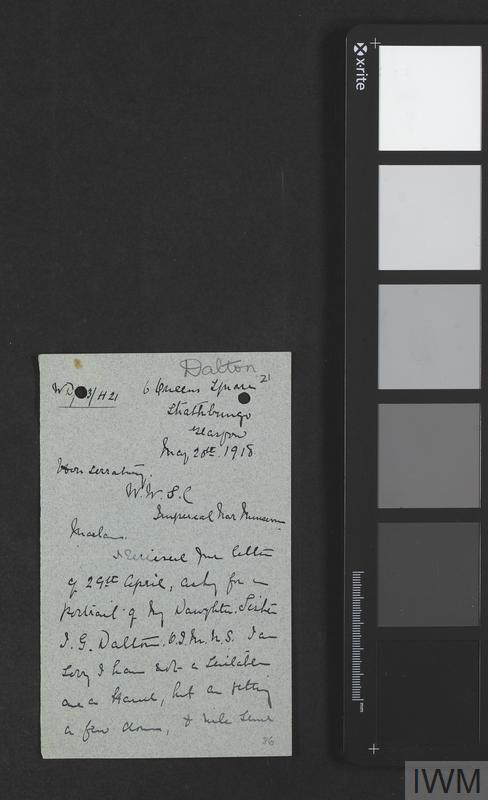 Dalton
21
3/H 21
6 Queens Square
Strathbungo
Glasgow
May 20th. 1918
Hon Secretary,
W. W. S. C
Imperial War Museum
Madam.
I Recieved your letter
of 29th April, asking for a
portrait of my Daughter. Sister
I. G. Dalton. Q.I.M.N.S. I am
Sorry I have not a Suitable
one on Hand, but am getting
a few done, & will Send
36
x-rite
mm
IWM